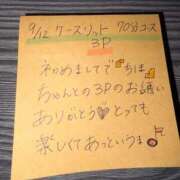 9/12 ケースリット 70分コース
3P
初めましてで
ちゃんとの3Pのお誘い
ありがとう♡とっても
楽しくてあっというま